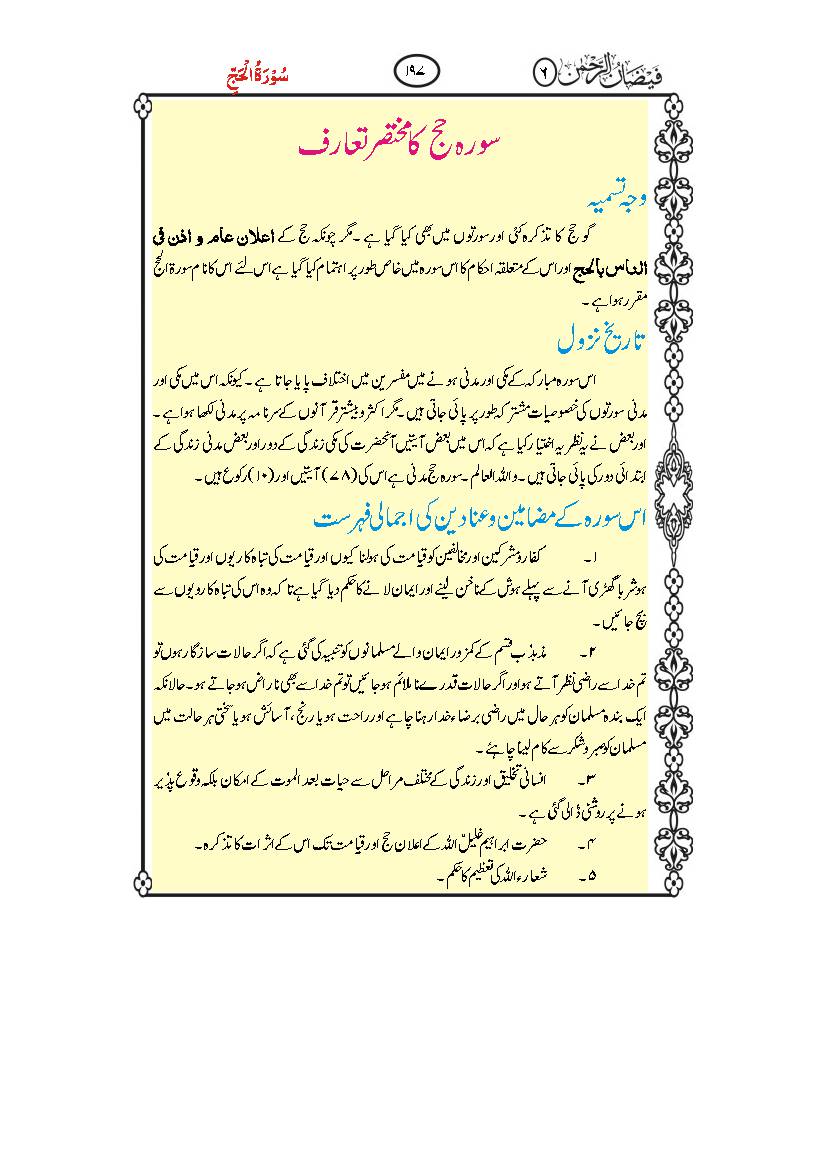 فَیْضَانُ الرَّحْمٰن ۶ ۱۹۷ سُوْرَةُ الْحَجِّ
سورہ حج کا مختصر تعارف
وجہ تسمیہ
گو حج کا تذکرہ کئی اور سورتوں میں بھی کیا گیا ہے ۔مگر چونکہ حج کے اعلان عام و اذن فی
الناس بالحج اور اس کے متعلقہ احکام کا اس سورہ میں خاص طور پر اہتمام کیا گیا ہے اس لئے اس کا نام سورۃ الحج
مقرر ہوا ہے ۔
تاریخ نزول
اس سورہ مبارکہ کے مکی اور مدنی ہونے میں مفسرین میں اختلاف پایا جاتا ہے ۔کیونکہ اس میں مکی اور
مدنی سورتوں کی خصوصیات مشترکہ طور پر پائی جاتی ہیں ۔مگر اکثر و بیشتر قرآنوں کے سرنامہ پر مدنی لکھا ہوا ہے ۔
اور بعض نے یہ نظریہ اختیار کیا ہے کہ اس میں بعض آیتیں آنحضرت کی مکی زندگی کے دور اور بعض مدنی زندگی کے
ابتدائی دور کی پائی جاتی ہیں ۔واللہ العالم ۔سورہ حج مدنی ہے اس کی (۷۸) آیتیں اور (۱۰) رکوع ہیں ۔
اس سورہ کے مضامین و عنادین کی اجمالی فہرست
۱۔ کفار و مشرکین اور مخالفین کو قیامت کی ہولناکیوں اور قیامت کی تباہ کاریوں اور قیامت کی
ہوشربا گھڑی آنے سے پہلے ہوش کے ناخن لینے اور ایمان لانے کا حکم دیا گیا ہے تاکہ وہ اس کی تباہ کارویوں سے
بچ جائیں ۔
۲۔ مذبذب قسم کے کمزور ایمان والے مسلمانوں کو تنبیہ کی گئی ہے کہ اگر حالات سازگار ہوں تو
تم خدا سے راضی نظر آتے ہو اور اگر حالات قدرے ناملائم ہو جائیں تو تم خدا سے بھی ناراض ہو جاتے ہو ۔حالانکہ
ایک بندہ مسلمان کو ہر حال میں راضی برضاء خدا رہنا چاہے اور راحت ہو یا رنج ،آسائش ہو یا سختی ہر حالت میں
مسلمان کو صبر و شکر سے کام لینا چاہئے ۔
۳۔ انسانی تخلیق اور زندگی کے مختلف مراحل سے حیات بعد الموت کے امکان بلکہ وقوع پذیر
ہونے پر روشنی ڈالی گئی ہے ۔
۴۔ حضرت ابراہیم خلیلؑ اللہ کے اعلان حج اور قیامت تک اس کے اثرات کا تذکرہ ۔
۵۔ شعاراء اللہ کی تعظیم کا حکم ۔